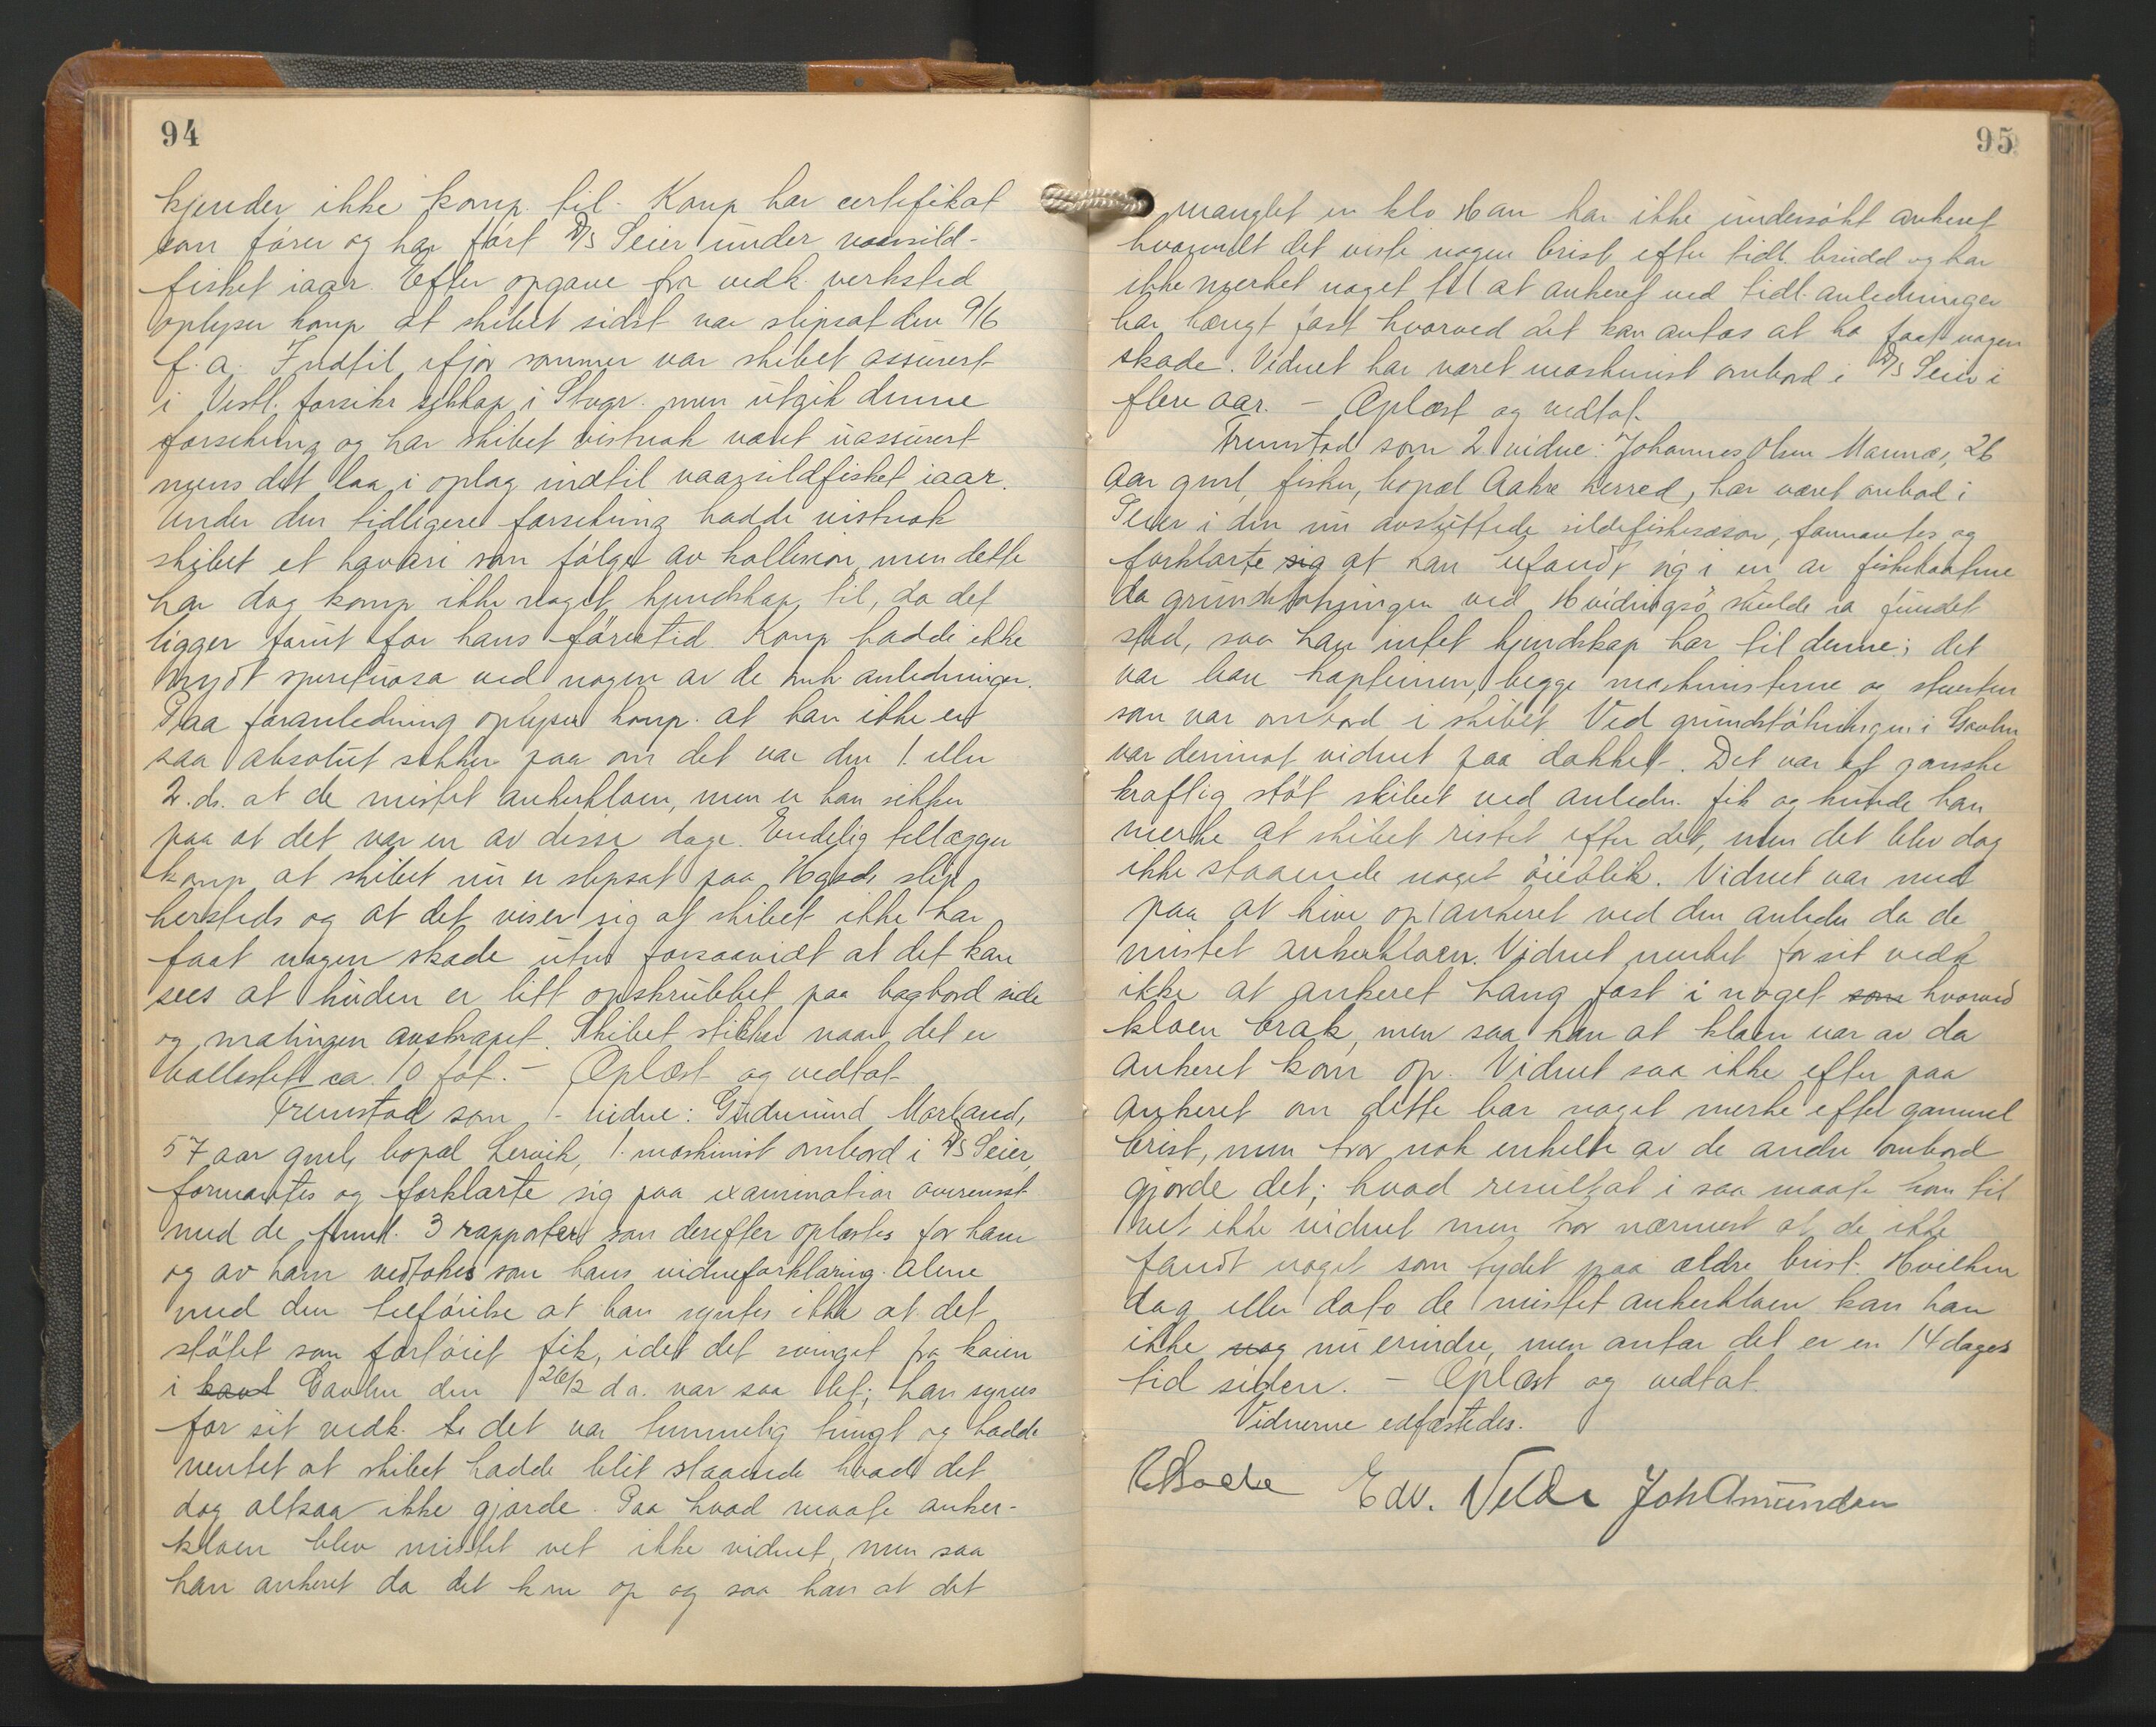 94
kjender ikke komp. til. Komp har certifikat
som fører og har ført D/S Seier under vaarsild-
fisket iaar. Efter opgave fra vedk. verksted
oplyser komp at skibet sidst var slipsat den 9/6
f. a. Indtil ifjor sommer var skibet assurert
i Vestl. forsikr selskap i Stvgr. men utgik denne
forsikring og har skibet vistnok været uassurert
mens det laa i oplag indtil vaarsildfisket iaar.
Under den tidligere forsikring hadde vistnok
skibet et havari som følge av kollision, men dette
har dog komp ikke noget kjendskap til, da det
ligger forut for hans førertid. Komp hadde ikke
nydt spirituosa ved nogen av de anledninger.
Paa foranledning oplyser komp. at han ikke er
saa absolut sikker paa om det var den 1. eller
2. ds. at de mistet ankerkloen, men er han sikker
paa at det var en av disse dage. Endelig tillægger
komp at skibet nu er slipsat paa Hgsds slip
hersteds og at det viser sig at skibet ikke har
faat nogen skade uten forsaavidt at det kan
sees at huden er litt opskrubbet paa bagbord side
og malingen avskrapet. Skibet stikker naar det er
ballastet ca. 10 fot. - Oplæst og vedtat
Fremstod som 1. vidne: Gudmund Marland,
57 aar gml, bopæl Lervik, 1. maskinist ombord i D/S Seier,
formantes og forklarte sig paa examination overensst
med de freml. 3 rapporter som derefter oplæstes for ham
og av ham vedtokes som hans vidneforklaring alene
med den tilføielse at han syntes ikke at det
støtet som fartøiet fik, idet det svinget fra kaien
i Gavlen den 26/2 d a. var saa let; han synes
for sit vedk. at det var temmelig tungt og hadde
ventet at skibet hadde blit staaende hvad det
dog altsaa ikke gjorde. Paa hvad maate anker-
kloen blev mistet vet ikke vidnet, men saa
han ankeret da det kom op og saa han at det
95
manglet en klo. Han har ikke undersøkt ankeret
hvorvidt det viste nogen brist efter tidl. brudd og har
ikke merket noget til at ankeret ved tidl. anledninger
har hængt fast hvorved det kan antas at ha faat nogen
skade. Vidnet har været maskinist ombord i D/S Seier i
flere aar. - Oplæst og vedtat.
Fremstod som 2. vidne: Johannes Olsen Mannes, 26
aar gml, fisker, bopæl Aakre herred, har været ombord i
Seier i den nu avsluttede sildefiskesæson, formantes og
forklarte sig at han befandt sig i en av fiskebaatene
da grundstøtningen ved Hvidingsø skulde ha fundet
sted, saa han intet kjendskap har til denne; det
var bare kapteinen, begge maskinisterne og stuerten
som var ombord i skibet. Ved grundstøtningen i Gavlen
var derimot vidnet paa dækket. Det var et ganske
kraftig støt skibet ved anledn. fik og kunde han
merke at skibet ristet efter det, men det blev dog
ikke staaende noget øieblik. Vidnet var med
paa at hive op ankeret ved den anledn da de
mistet ankerkloen. Vidnet merket for sit vedk
ikke at ankeret hang fast i noget som hvorved
kloen brak, men saa han at kloen var av da
ankeret kom op. Vidnet saa ikke efter paa
ankeret om dette bar noget merke efter gammel
brist, men tror nok enkelte av de andre ombord
gjorde det; hvad resultat i saa maate kom til
vet ikke vidnet men tror nærmest at de ikke
fandt noget som tydet paa ældre brist. Hvilken
dag eller dato de mistet ankerkloen kan han
ikke nog nu erindre, men antar det er en 14 dages
tid siden. - Oplæst og vedtat.
Vidnerne edfæstedes.
Edv. Velde Joh Amundsen